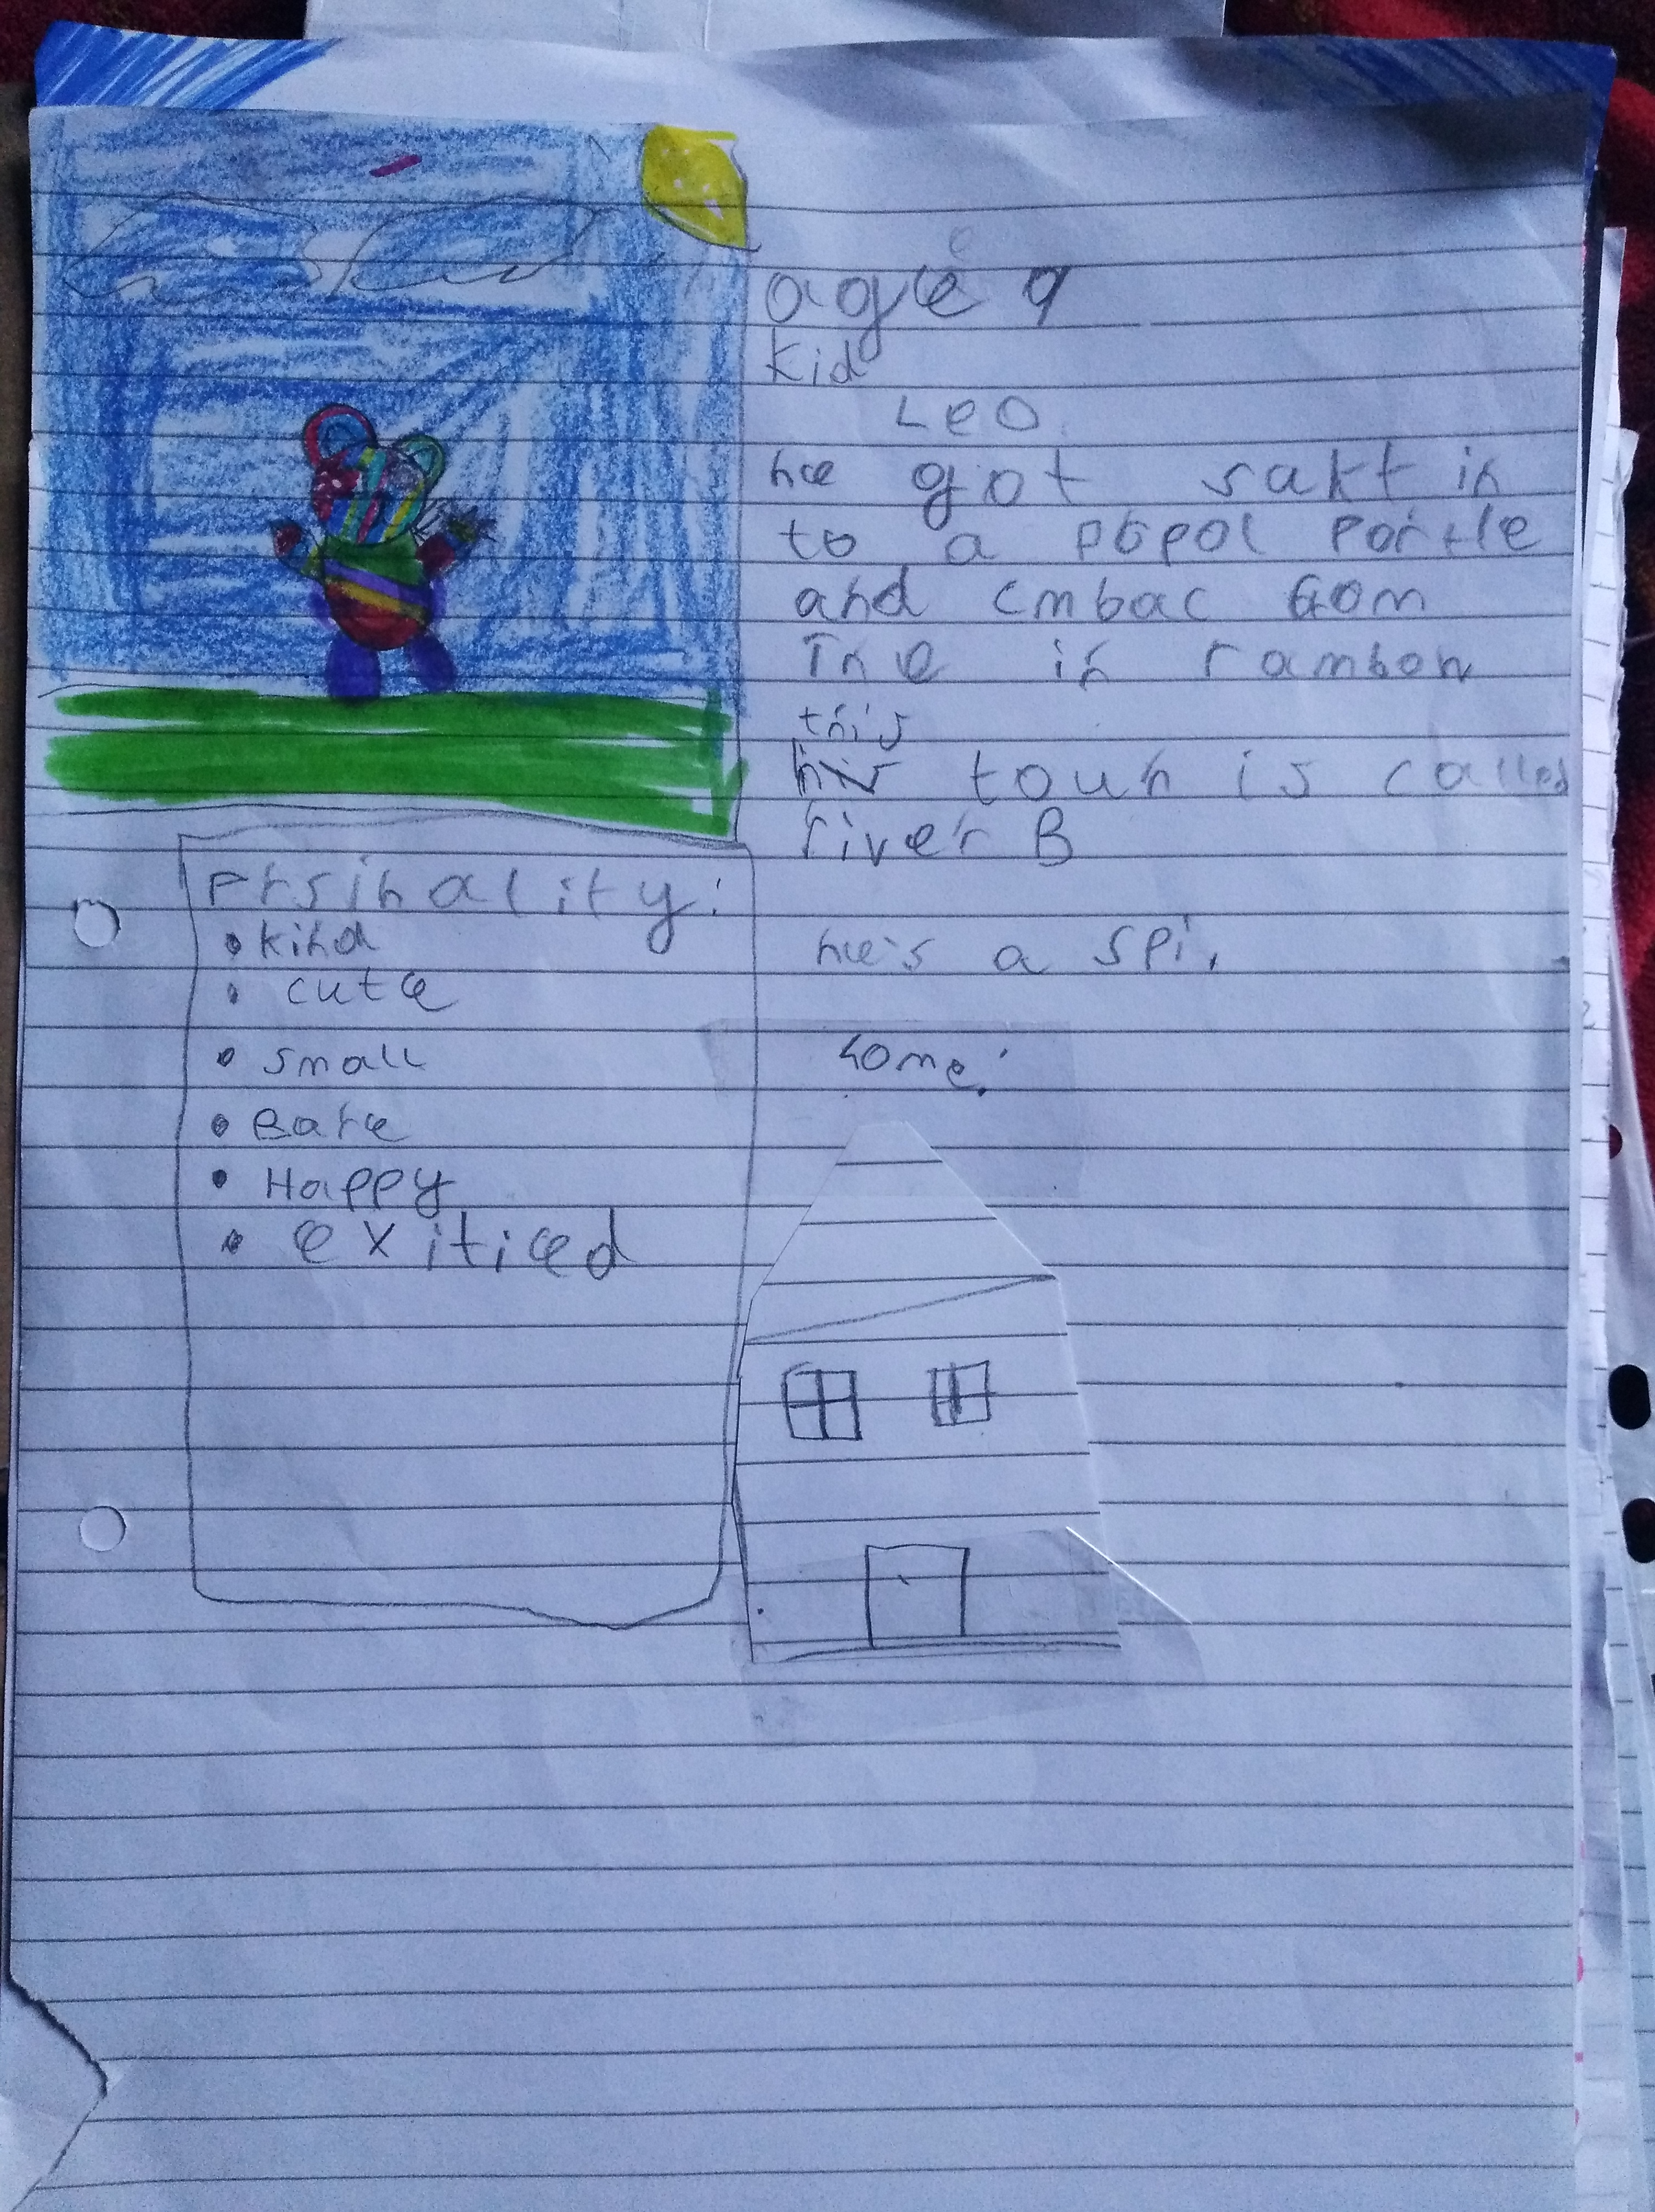 age 9
kid
Leo
he got sakt in
to a popol portle
and cmbac from
The in rambow
this
his toun is called
river B
he's a spi.
Home:
prsinality:
• kind
• cute
• small
• Bare
• Happy
• exiticed